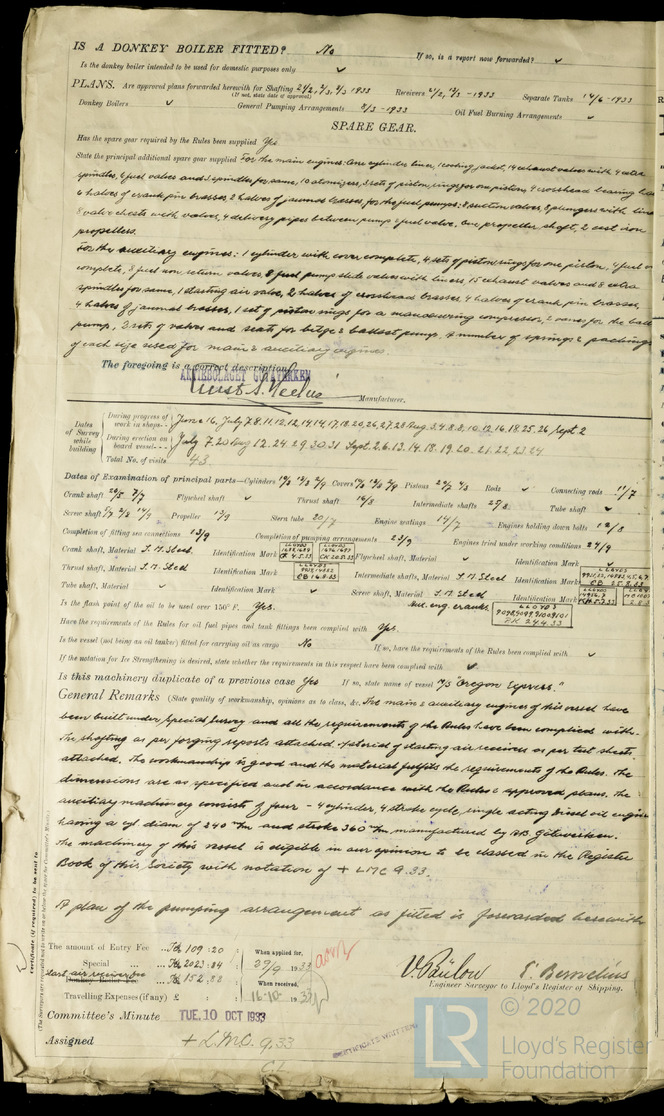 IS A DONKEY BOILER FITTED? No If so, is a report now forwarded? ✓
Is the donkey boiler intended to be used for domestic purposes only ✓
PLANS. Are approved plans forwarded herewith for Shafting 1933 Receivers -1933 Separate Tanks 14/6-1933
(If not, state date of approval)
Donkey Boilers ✓ General Pumping Arrangements 2/3-1933 Oil Fuel Burning Arrangements ✓
SPARE GEAR.
Has the spare gear required by the Rules been supplied Yes
State the principal additional spare gear supplied For the main engines: One cylinder liner, 1 cooling jacket, 14 exhaust valves with 4 extra
spindles, 6 fuel valves and 3 spindles for same, 10 atomizers, 3 sets of piston rings for one piston, 4 crosshead bearing
6 halves of crank pin brasses, 2 halves of journal brasses, for the fuel pumps: 2 suction valves, 3 plungers with
8 valve chests with valves, 4 delivery pipes between pump & fuel valve, One propeller shaft, 2 cast iron
propellers.
For the auxiliary engines: 1 cylinder with cover complete, 4 sets of piston rings for one piston, 4 fuel
complete, 8 fuel non return valves, 8 fuel pump slide valves with liners, 15 exhaust valves and 8 extra
spindles for same, 1 starting air valve, 2 halves of crosshead brasses, 4 halves of crank pin brasses,
4 halves of journal brasses, 1 set of piston rings for a manoeuvring compressor, 2 vanes for the
pump, 2 sets of valves and seats for bilge & ballast pump, a number of springs & packings
of each size used for main & auxiliary engines.
The foregoing is a correct description,
AKTIEBOLAGET GÖTAVERKEN
Manufacturer.
Dates of Survey while building
During progress of work in shops-- June 16, July 7.8.11.12.12.14.14.17.18.20.26.27.28 Aug 3.4.8.8.10.12.16.18.25.26 Sept 2
During erection on board vessel--- July 7.20 Aug 12.24.29.30.31 Sept. 2.6.13.14.18.19.20.21.22.23.24
Total No. of visits 43.
Dates of Examination of principal parts—Cylinders Covers Pistons Rods ✓ Connecting rods 11/7
Crank shaft Flywheel shaft ✓ Thrust shaft 16/8 Intermediate shafts 29/8 Tube shaft ✓
Screw shaft Propeller 13/9 Stern tube 20/7 Engine seatings 14/7 Engines holding down bolts 12/8
Completion of fitting sea connections 13/9 Completion of pumping arrangements 23/9 Engines tried under working conditions 24/9
Crank shaft, Material S.M. Steel Identification Mark LLOYDS Flywheel shaft, Material ✓ Identification Mark ✓
Thrust shaft, Material S.M. Steel Identification Mark LLOYDS CB 16.8.33 Intermediate shafts, Material S.M. Steel Identification Marks LLOYDS CB 25.8.33
Tube shaft, Material ✓ Identification Mark ✓ Screw shaft, Material S.M. Steel Identification Mark LLOYDS
Is the flash point of the oil to be used over 150° F. Yes. Aux. eng. cranks LLOYDS 9098,9099,9100,9101 24.4.33
Have the requirements of the Rules for oil fuel pipes and tank fittings been complied with Yes.
Is the vessel (not being an oil tanker) fitted for carrying oil as cargo No If so, have the requirements of the Rules been complied with ✓
If the notation for Ice Strengthening is desired, state whether the requirements in this respect have been complied with ✓
Is this machinery duplicate of a previous case Yes If so, state name of vessel M/S "Oregon Express."
General Remarks (State quality of workmanship, opinions as to class, &c. The main & auxiliary engines of this vessel have
been built under Special Survey and all the requirements of the Rules have been complied with.
The shafting as per forging reports attached. Material of starting air receivers as per test sheet
attached. The workmanship is good and the material fulfils the requirements of the Rules. The
dimensions are as specified and in accordance with the Rules & approved plans. The
auxiliary machinery consists of four - 4 cylinder, 4 stroke cycle, single acting Diesel oil engines
having a cyl diam of 240 m/m and stroke 360 m/m manufactured by AB. Götaverken.
The machinery of this vessel is eligible in our opinion to be classed in the Register
Book of this Society with notation of + LMC 9.33.
A plan of the pumping arrangement as fitted is forwarded herewith
Certificate (if required) to be sent to
The amount of Entry Fee ... Kr. 109 : 20 When applied for,
Special ... Kr. 2023 : 84 29/9 1933
start. air receiver fee Donkey Boiler Fee ... Kr. 152 : 88 When received,
Travelling Expenses (if any) £ : 16-10-1933
V. Paulow E. Bernelius
Engineer Surveyor to Lloyd's Register of Shipping.
Committee's Minute TUE. 10 OCT 1933
Assigned + L.M.C. 9.33
CERTIFICATE WRITTEN
© 2020
LR
Lloyd's Register
Foundation